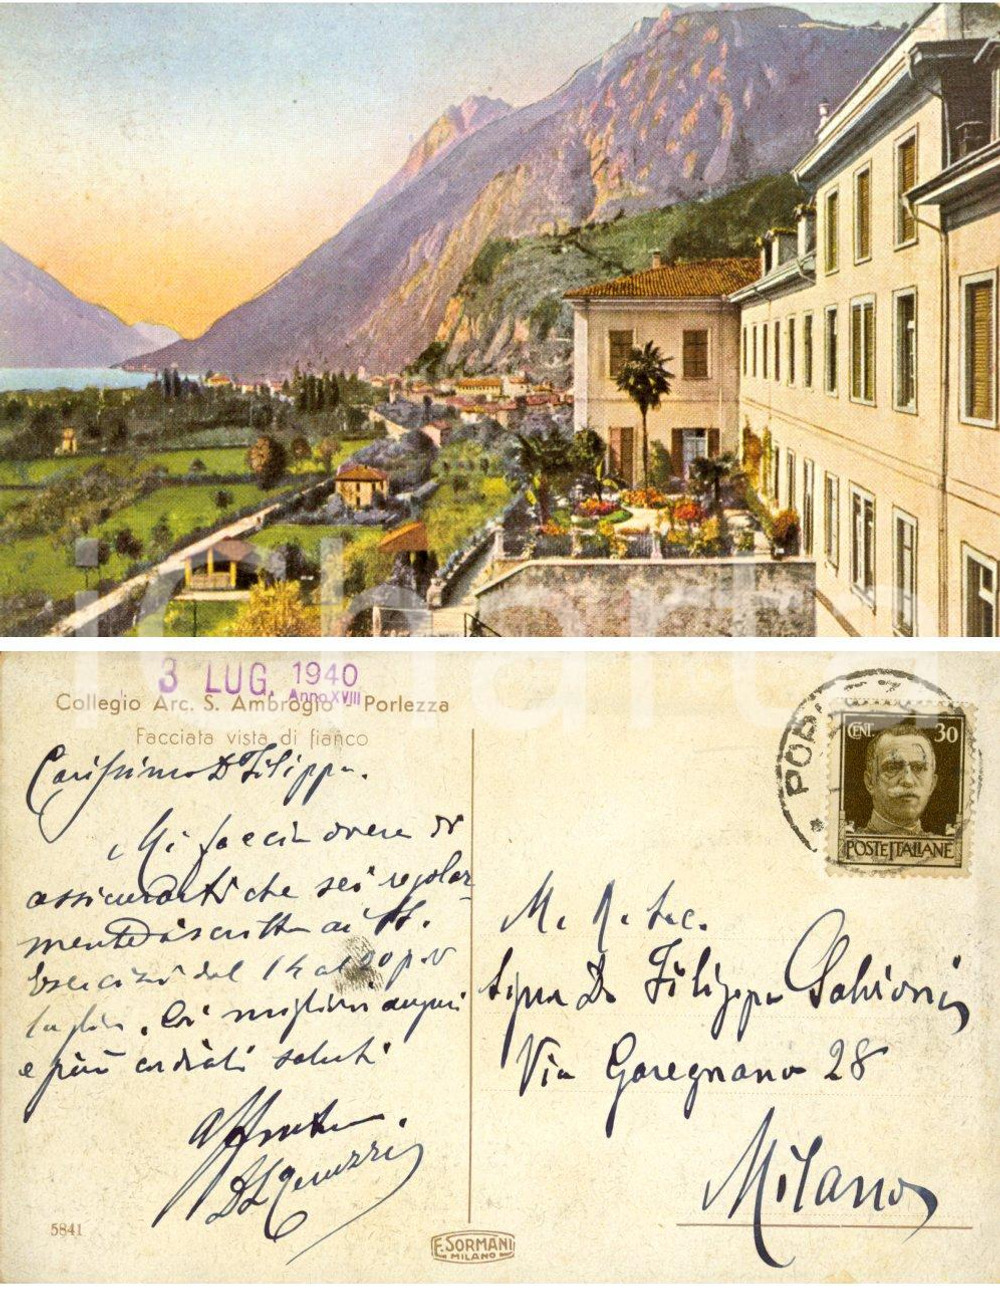 3 LUG. 1940
Anno XVIII
Collegio Arc. S. Ambrogio - Porlezza
Facciata vista di fianco
Carissimo D Filippo.
Mi faccio dovere di
assicurarti che sei regolar
mente iscritto ai SS.
Esercizi dal 14 al 20 p.v
luglio. Coi migliori auguri
e più cordiali saluti
Aff
D L
5841
F. SORMANI
MILANO
POR
CENT. 30
POSTE ITALIANE
M. R. Sac.
Sign Do Filippo Salvioni
Via Garegnano 28
Milano